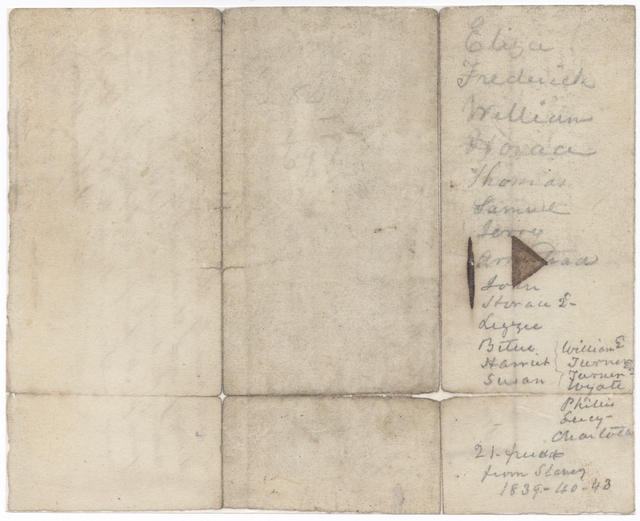 Eliza
Frederick
William
Horace
Thomas
Samuel
Jerry
Armstead
John
Horace 2-
Lizzie
Betsie William
Harriet Turner
Susan Turner
Wyatt
Phillis
Lucy-
Charlotte
21-freed
from Slavery
1839-40-43